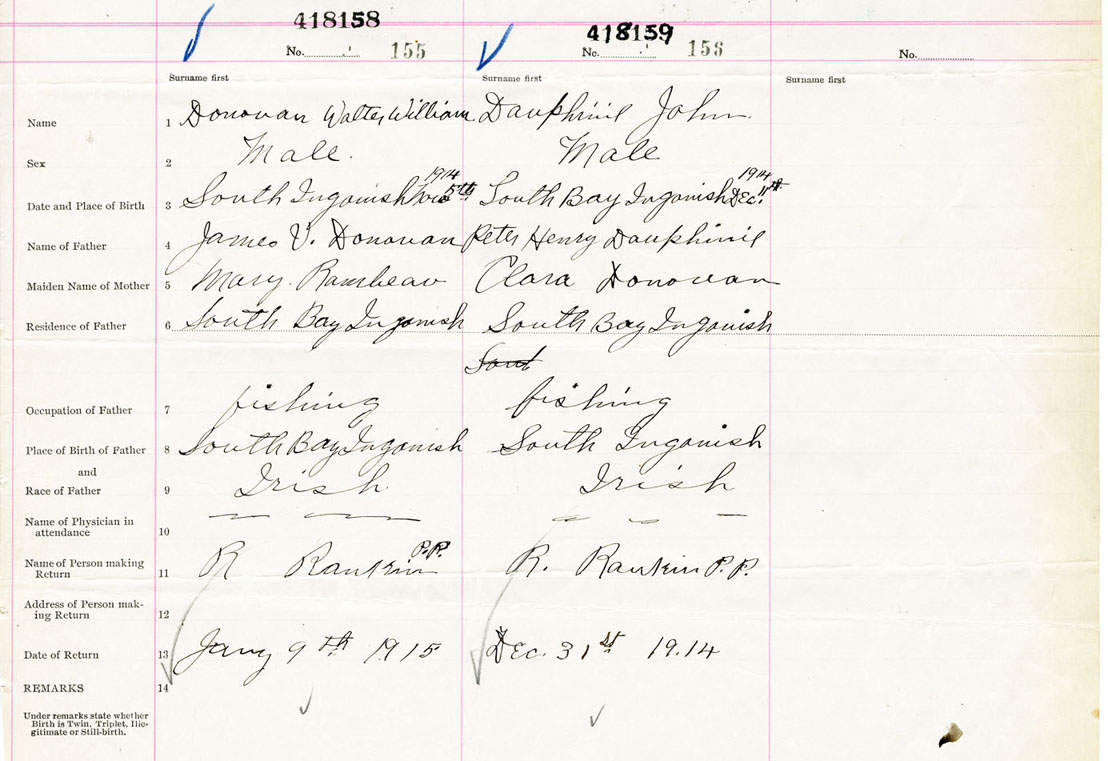 418158 418159
No. 155 No. 156 No.
Surname first Surname first Surname first
Name 1 Donovan Walter William Dauphinie John
Sex 2 Male. Male
1914 1914
Date and Place of Birth 3 South Ingonish Nov 5th South Bay Ingonish Dec. 11th
Name of Father 4 James V. Donovan Peter Henry Dauphinie
Maiden Name of Mother 5 Mary Rambeau Clara Donovan
Residence of Father 6 South Bay Ingonish South Bay Ingonish
Sout
Occupation of Father 7 fishing fishing
Place of Birth of Father 8 South Bay Ingonish South Ingonish
and
Race of Father 9 Irish Irish
Name of Physician in
attendance 10
Name of Person making
Return 11 R Rankin P.P. R. Rankin P.P.
Address of Person mak-
ing Return 12
Date of Return 13 Jany 9th 1915 Dec. 31st 19.14
REMARKS 14
Under remarks state whether
Birth is Twin, Triplet, Ille-
gitimate or Still-birth.